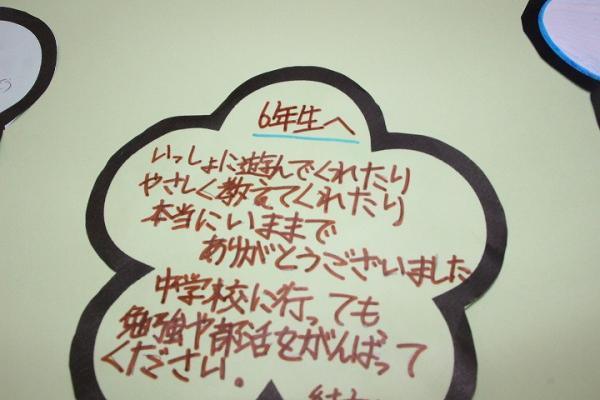 6年生へ
いっしょに遊んでくれたり
やさしく教えてくれたり
本当にいままで
ありがとうございました
中学校に行っても
勉強や部活をがんばって
ください。